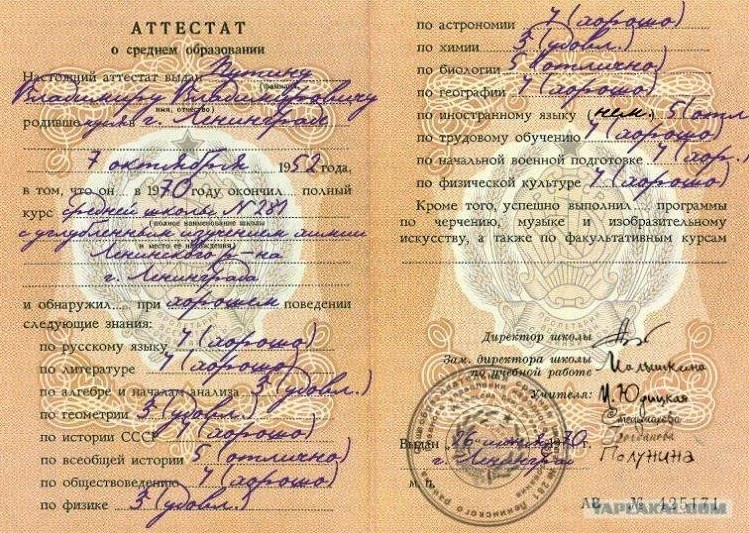 АТТЕСТАТ
о среднем образовании
Настоящий аттестат выдан Путину
(фамилия,
Владимиру Владимировичу
имя, отчество)
родившемуся в г. Ленинграде
7 октября 1952 года,
в том, что он ... в 1970 году окончил ... полный
курс средней школы № 281
(полное наименование школы
с углубленным изучением химии
и место ее нахождения)
Ленинского р-на
г. Ленинграда
и обнаружил.... при хорошем поведении
следующие знания:
по русскому языку 4 (хорошо)
по литературе 4 (хорошо)
по алгебре и началам анализа 3 (удовл.)
по геометрии 3 (удовл.)
по истории СССР 4 (хорошо)
по всеобщей истории 5 (отлично)
по обществоведению 4 (хорошо)
по физике 3 (удовл.)
по астрономии 4 (хорошо)
по химии 3 (удовл.)
по биологии 5 (отлично)
по географии 4 (хорошо)
по иностранному языку (нем.) 5 (отл
по трудовому обучению 4 (хорошо)
по начальной военной подготовке 4 (хор.)
по физической культуре 4 (хорошо)
Кроме того, успешно выполнил.... программы
по черчению, музыке и изобразительному
искусству, а также по факультативным курсам
Директор школы
Зам. директора школы
по учебной работе Малышкина
Учителя: И. Юдицкая
Стельмахова
Богданова
Полунина
Выдан 26 1970 г.
г. Ленинград
М. П.
АВ № 425171
YAPLAKAL.COM